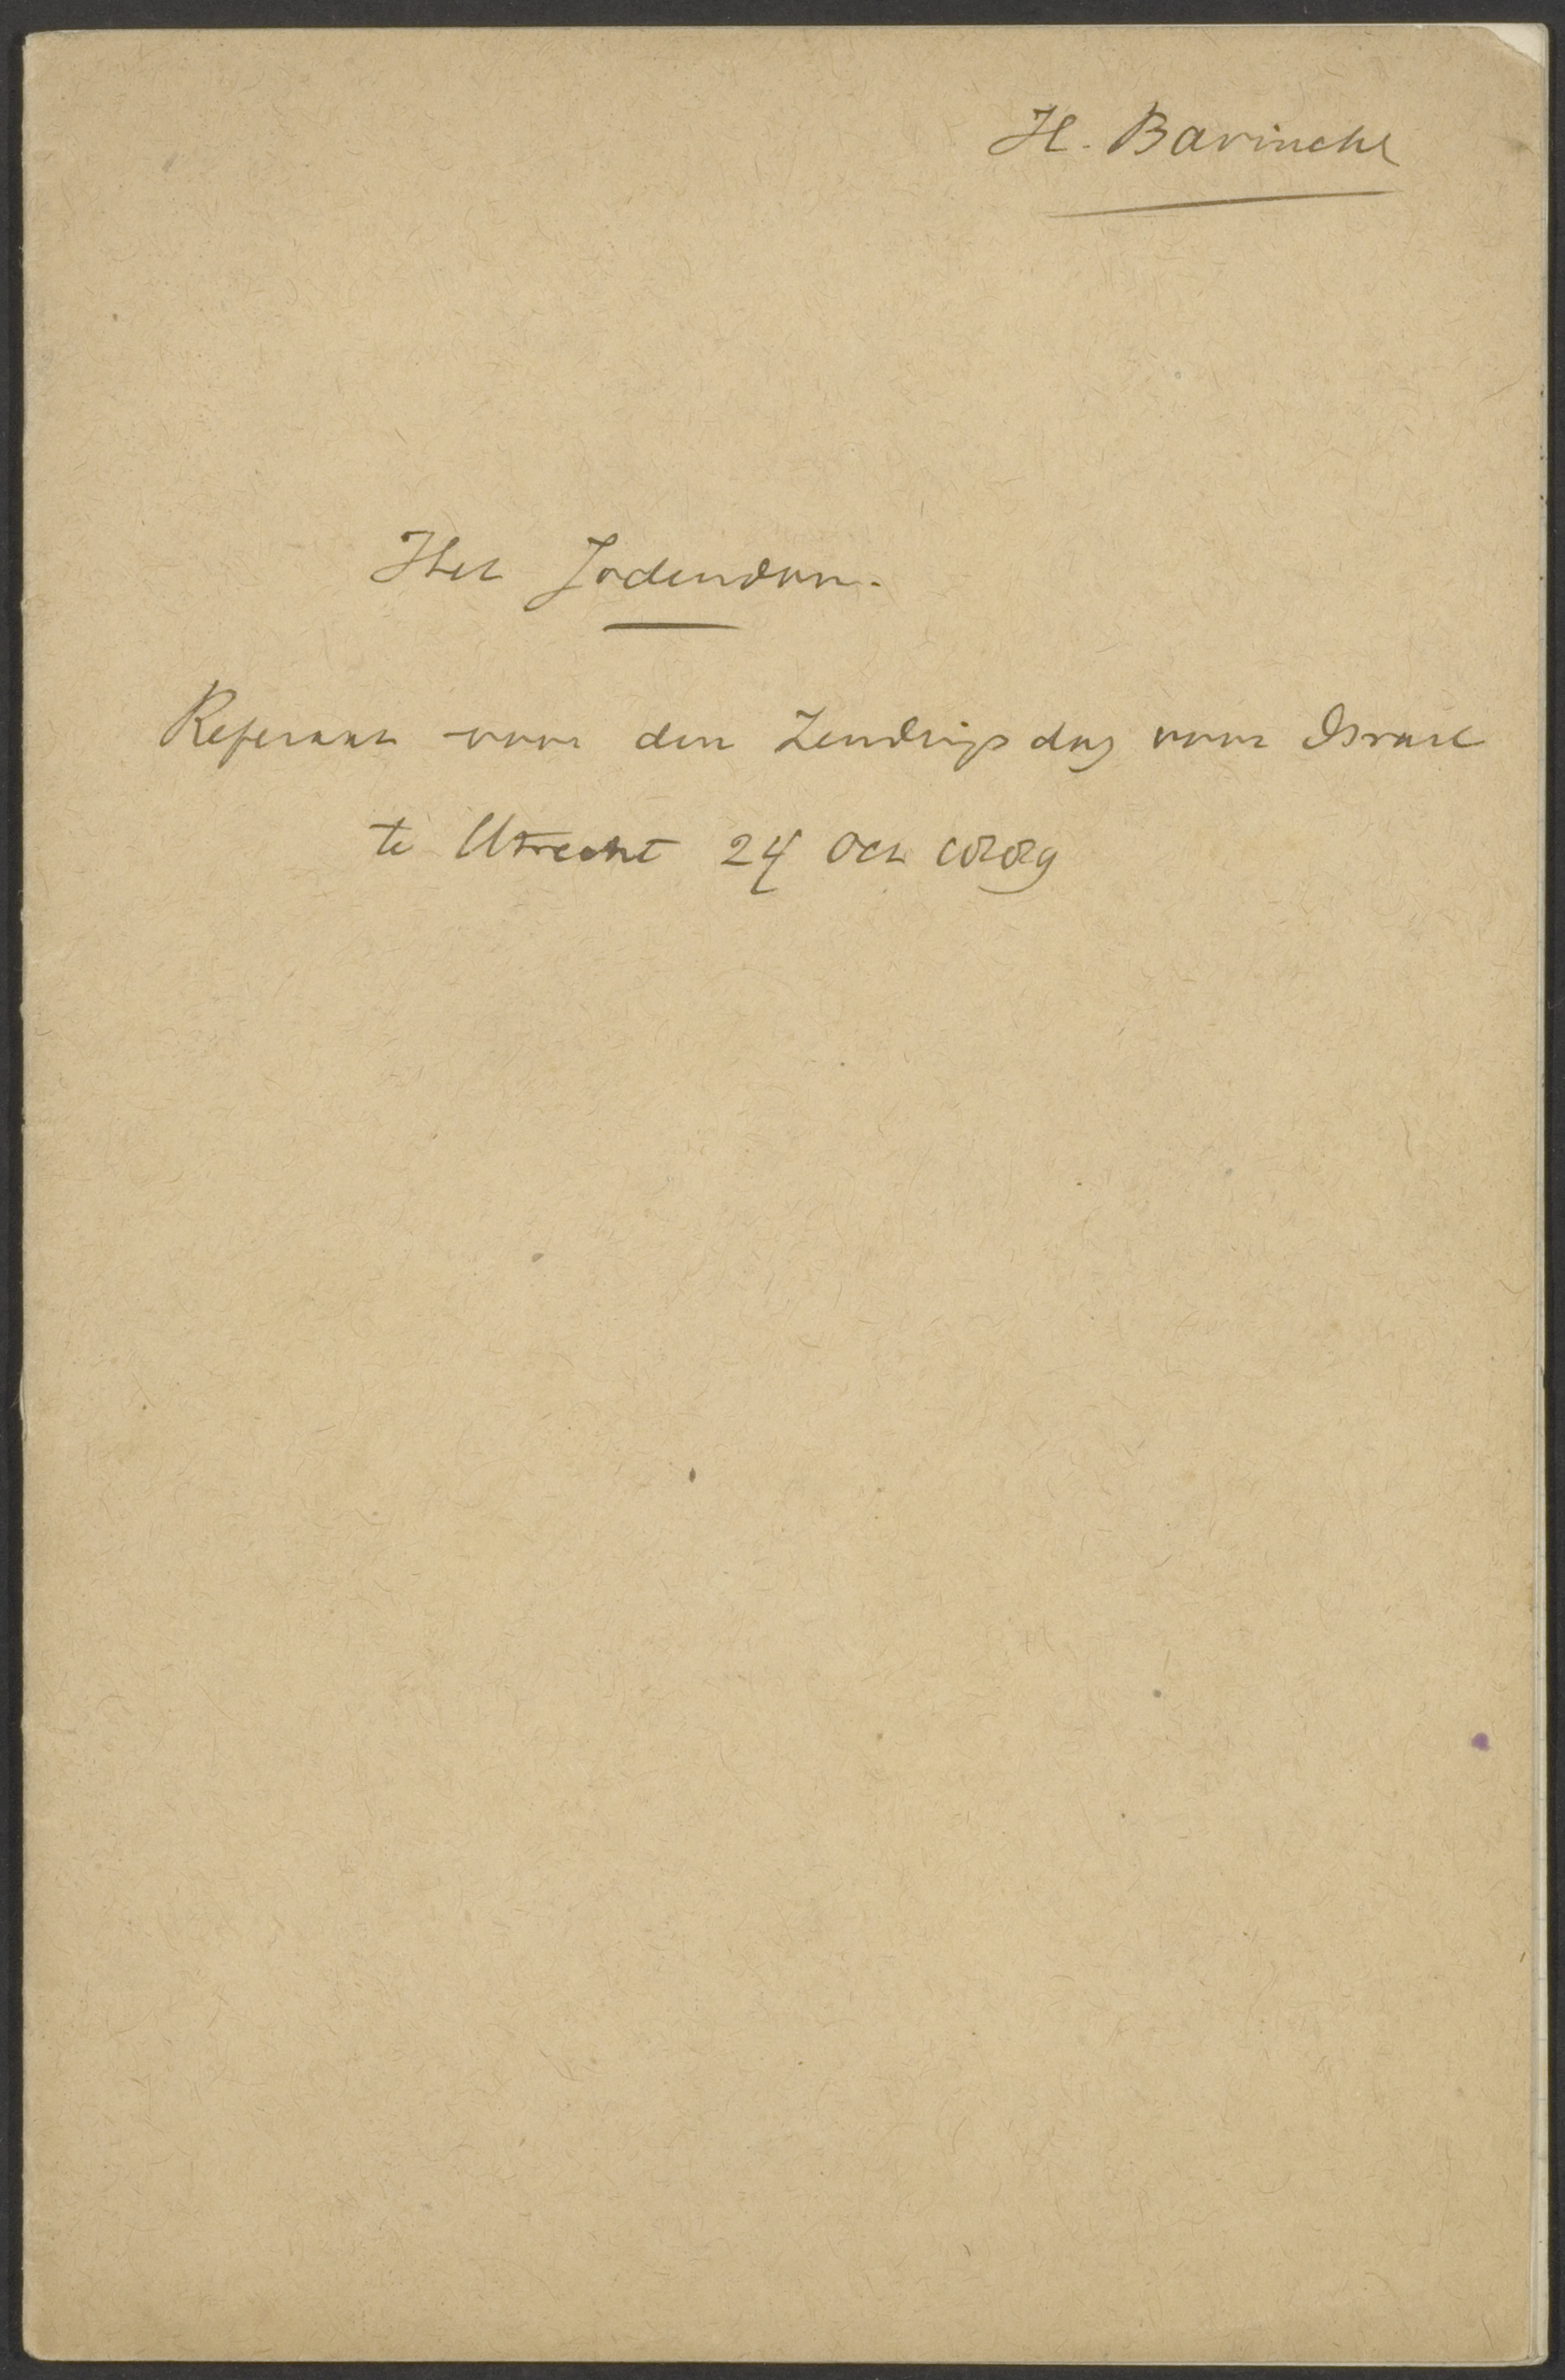 H. Bavinck
Het Jodendom.
Referaat voor den Zendingsdag voor Israel
te Utrecht 24 Oct